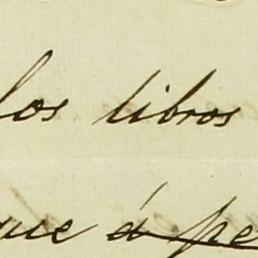 los libros
que á pe